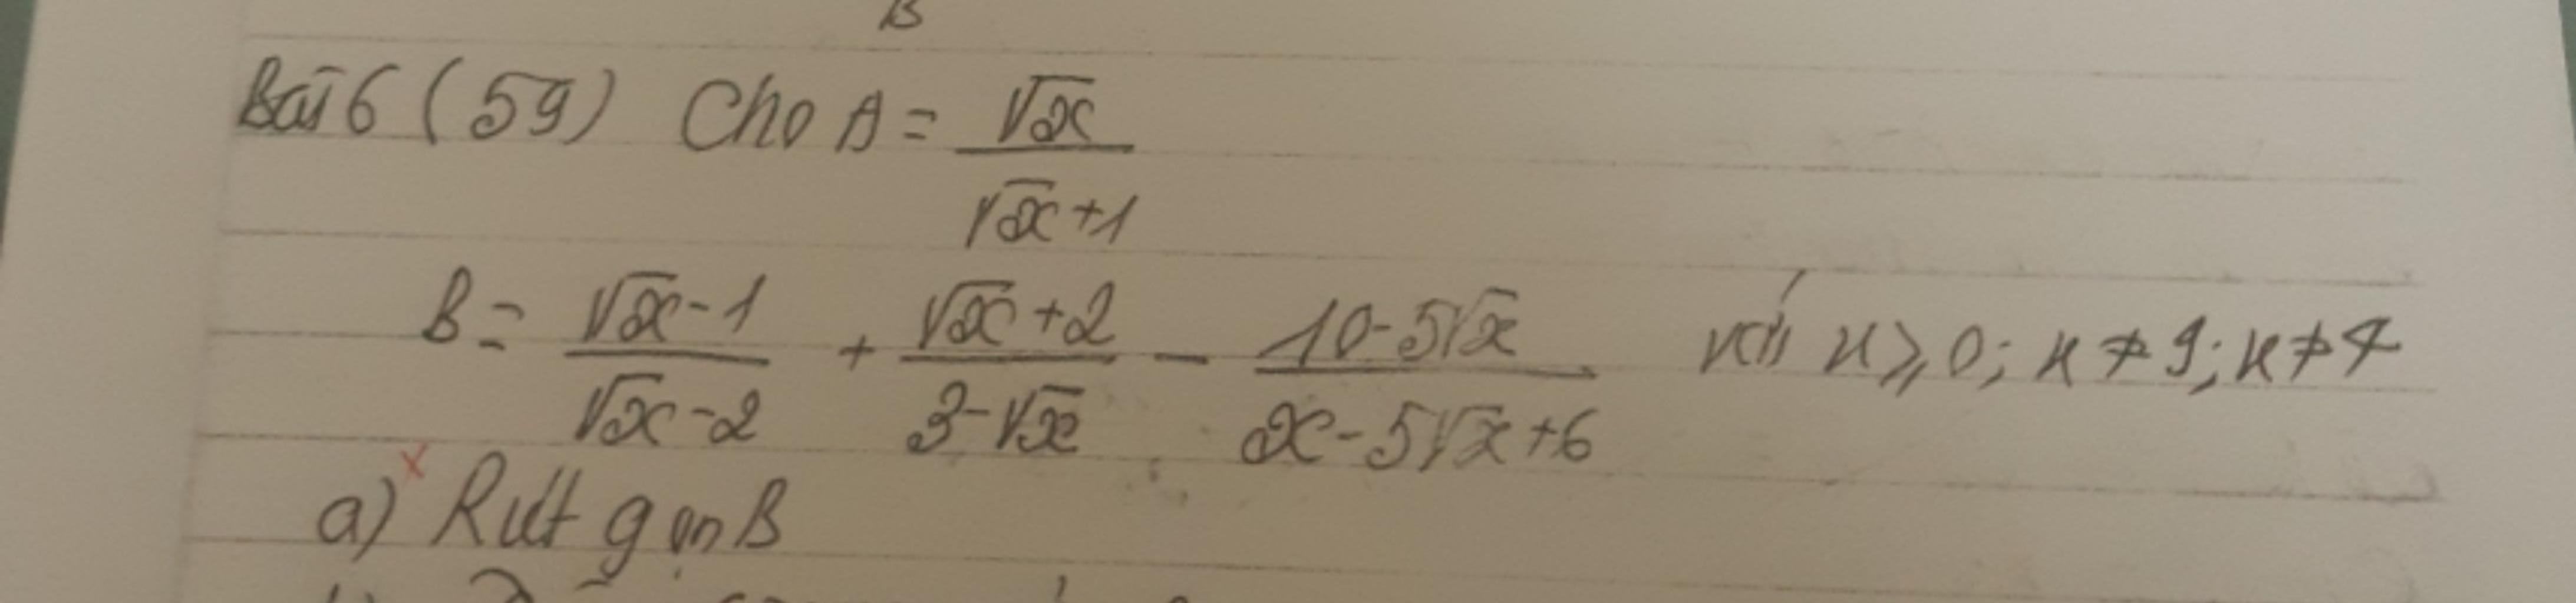 B
Bài 6 (59) Cho A = √x / (√x + 1)
B = (√x - 1) / (√x - 2) + (√x + 2) / (3 - √x) - (10 - 5√x) / (x - 5√x + 6) với x ≥ 0; x ≠ 9; x ≠ 4
a) Rút gọn B